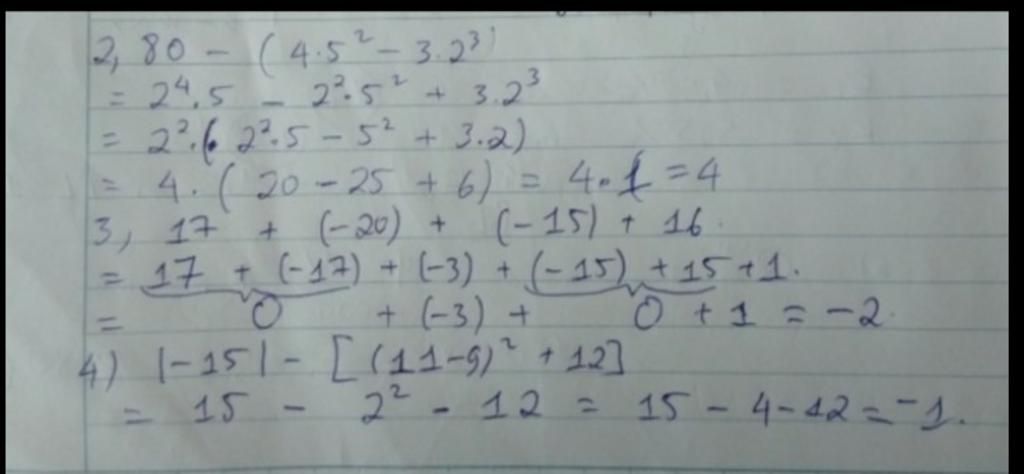 2, 80 - (4.5² - 3.2³)
= 2⁴.5 - 2².5² + 3.2³
= 2².(2².5 - 5² + 3.2)
= 4.(20 - 25 + 6) = 4.1 = 4
3, 17 + (-20) + (-15) + 16.
= 17 + (-17) + (-3) + (-15) + 15 + 1.
= 0 + (-3) + 0 + 1 = -2.
4) |-15| - [(11-9)² + 12]
= 15 - 2² - 12 = 15 - 4 - 12 = -1.